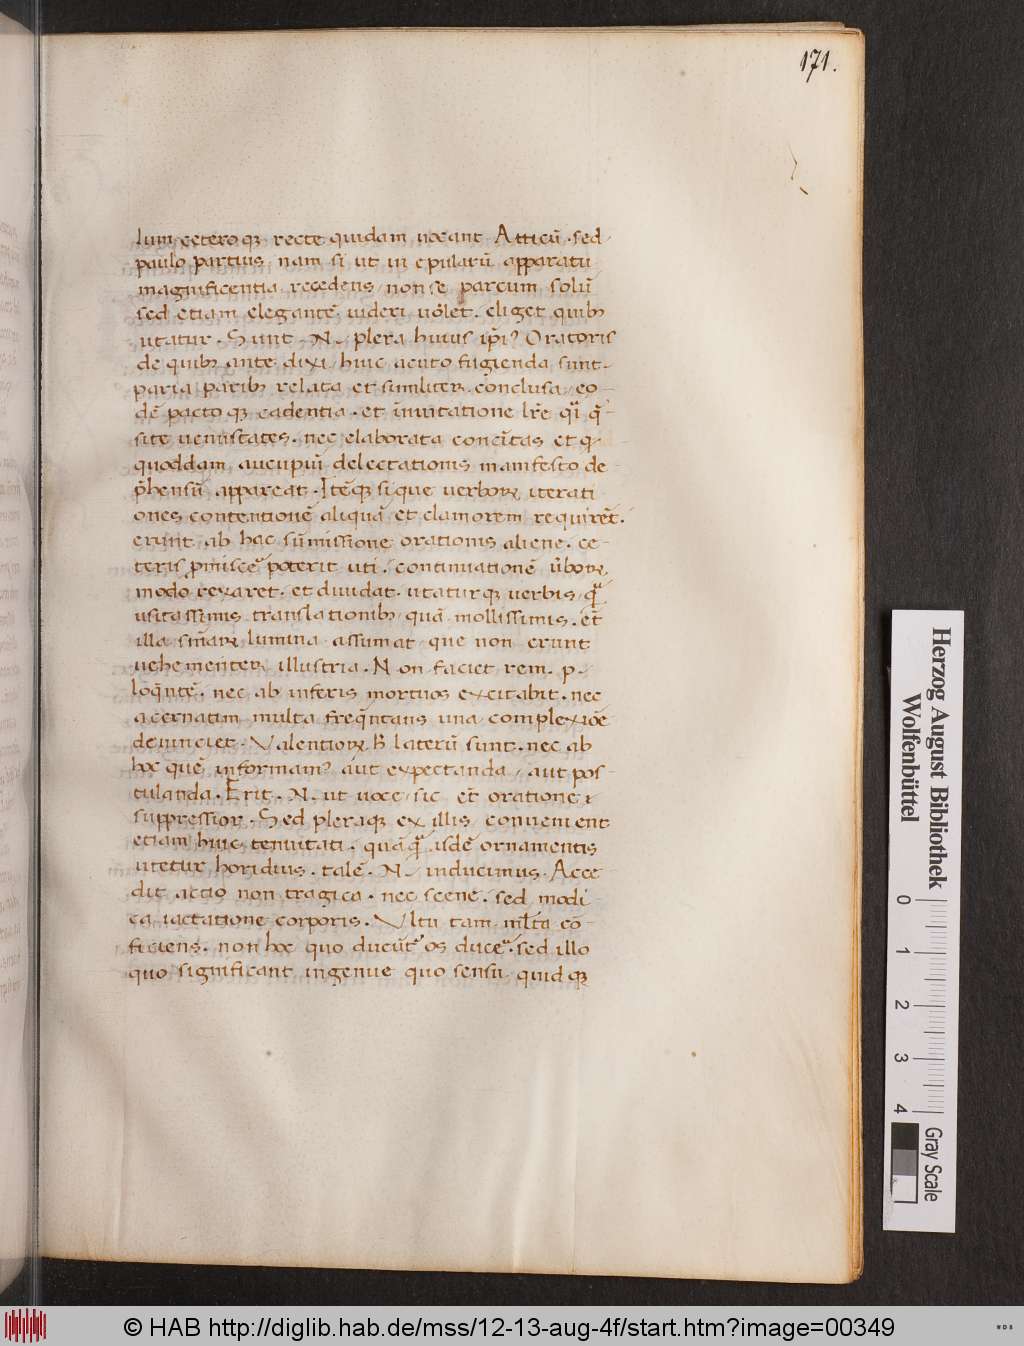 171.
lum ceteroqꝫ recte quidam uocant Atticũ. sed
paulo partius. nam si ut in epularũ apparatu
magnificentia recedens, non se parcum solũ
sed etiam elegantẽ uideri uolet. eliget quibꝫ
utatur. Sunt. N. plera huius ip̃iꝰ Oratoris
de quibꝫ ante dixi, huic acuto fugienda sunt.
paria paribꝫ relata et similiter conclusa, eo-
dẽ pacto qꝫ cadentia. et ĩmitatione lr̃e
site uenustates. nec elaborata concĩtas et q.
quoddam aucupiũ delectationis manifesto de
p̃hensũ appareat. Itẽqꝫ si que uerboꝝ iterati
ones contentionẽ aliquã et clamorem requirẽt.
erunt ab hac sũmissione orationis aliene. ce-
teris p̃misce poterit uti. continuationẽ ũboꝝ
modo rexaret. et diuidat. utaturqꝫ uerbis
usitatissimis translationibꝫ quã mollissimis. et̃
illa sñiaꝝ lumina assumat que non erunt
uehementer illustria. Non faciet rem. p.
loq̃ntẽ. nec ab inferis mortuos excitabit. nec
aceruatim multa freq̃ntans una complexiõe
deuinciet. Valentioꝝ ħ laterũ sunt. nec ab
hoc quẽ informamꝰ aut expectanda, aut pos-
tulanda. Erit. N. ut uoce, sic et̃ oratione
suppressior. Sed pleraqꝫ ex illis conuenient
etiam huic tenuitati. quãq̃ isdẽ ornamentis
utetur horidius. talẽ. N. inducimus. Acce
dit actio non tragica. nec scene. sed modi
ca iactatione corporis. Vltu tam ml̃ta cõ-
ficiens. non hoc quo ducũt os duce. sed illo
quo significant ingenue quo sensu quidqꝫ
Herzog August Bibliothek
Wolfenbüttel
0 1 2 3 4
Gray Scale
© HAB http://diglib.hab.de/mss/12-13-aug-4f/start.htm?image=00349